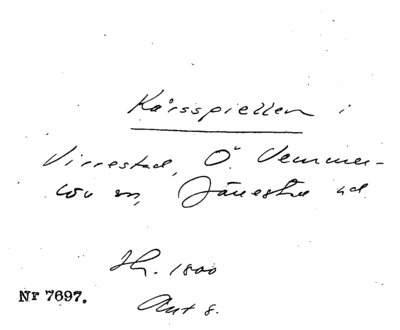 Kårsspiellen i
Virrestad, Ö. Vemmer-
löv sn, Järrestad hd
Hs. 1800
Ant 8.
Nr 7697.